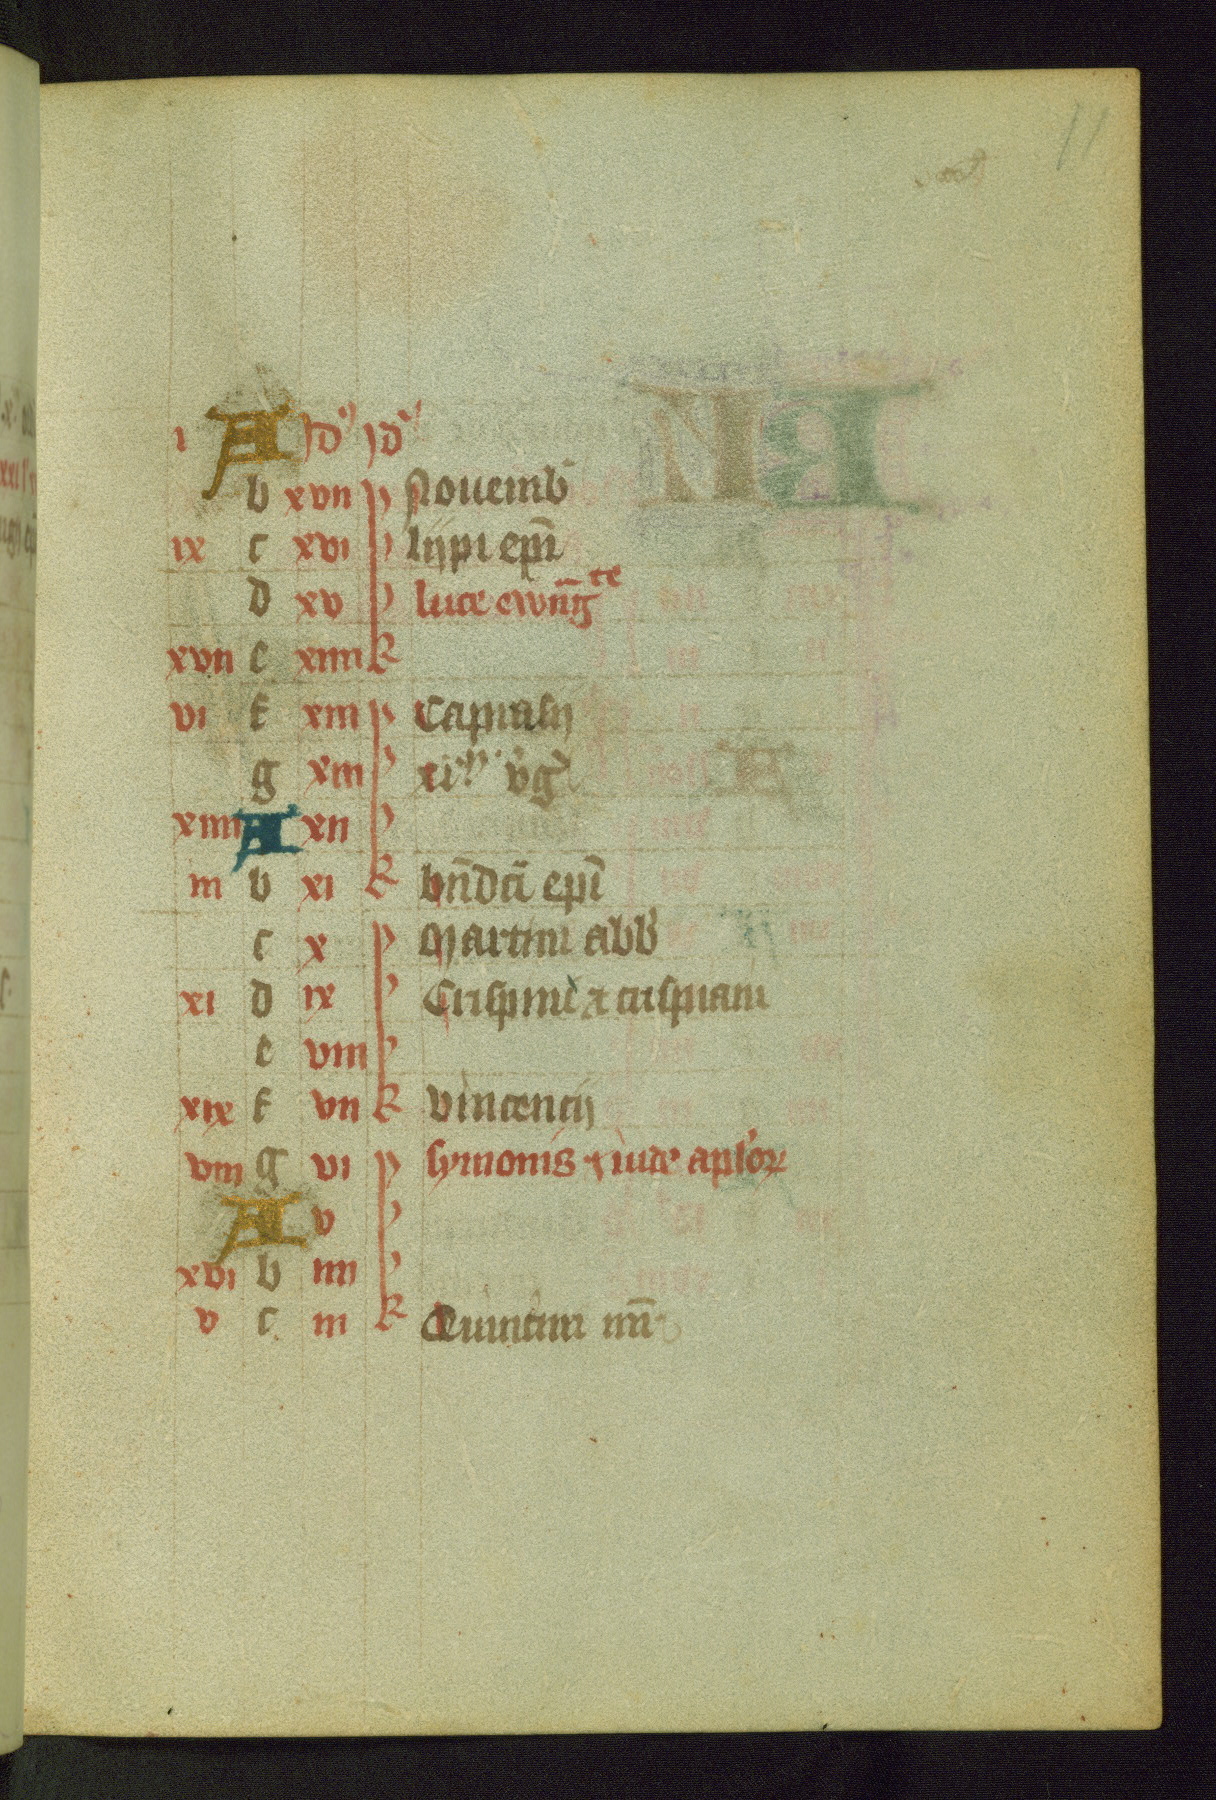 11
i A Jdꝰ Jdꝰ
b xvii k Nouemb̄
ix c xvi k lijpi epī
d xv k luce ewāg̅te
xvii e xiiii k
vi f xiii k Caprasij
g xiii k xiᵐ v̓g̓
xiiii A xii k
iii b xi k bn̄dc̄i epī
c x k Martini abb̓
xi d ix k Crispini ⁊ crispiani
e viii k
xix f vii k vincencij
viii g vi k symonis ⁊ iude apl̓oꝝ
A v k
xvi b iiii k
v c iii k Quintini mr̄